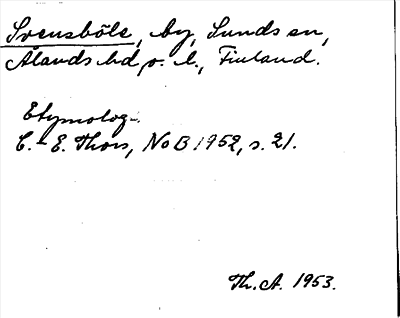 Svensböle, by, Sunds sn,
Ålands hd, o. l., Finland.
Etymolog.
C.-E. Thors, NoB 1952, s. 21.
Th. A. 1953.